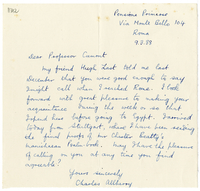 Pensione Primrose
Via Monte Bello 104
Rome
9.2.39
Dear Professor Cumont
My friend Hugh Last told me last
December that you were good enough to say
I might call when I reached Rome. I look
forward with great pleasure to making your
acquaintance during the week or so that
I spend here before going to Egypt. I arrived
today from Stuttgart, where I have been seeing
the final proofs of the Chester Beatty's
Manichaean Psalm-book. May I have the pleasure
of calling on you at any time you find
agreeable?
Yours sincerely
Charles Allberry